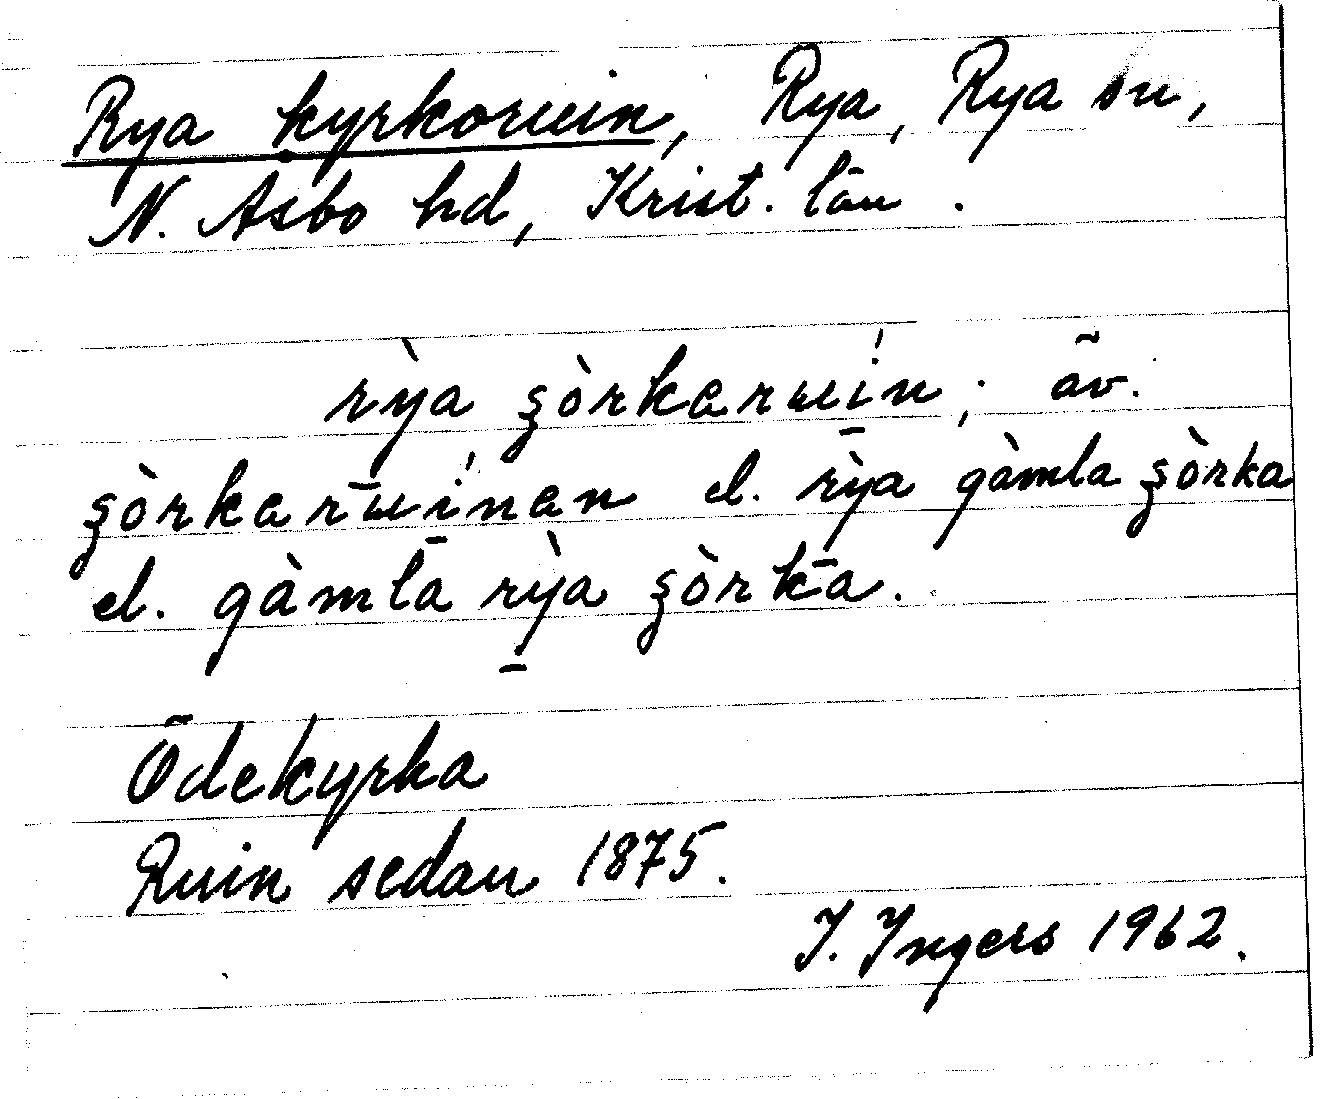 Rya kyrkoruin, Rya, Rya sn,
N. Åsbo hd, Krist. län.
rỳa ʂòrkeruin; äv.
ʂòrkeruinen el. rỳa gàmla ʂòrka
el. gàmla rỳa ʂòrka.
Ödekyrka
Ruin sedan 1875.
I. Ingers 1962.